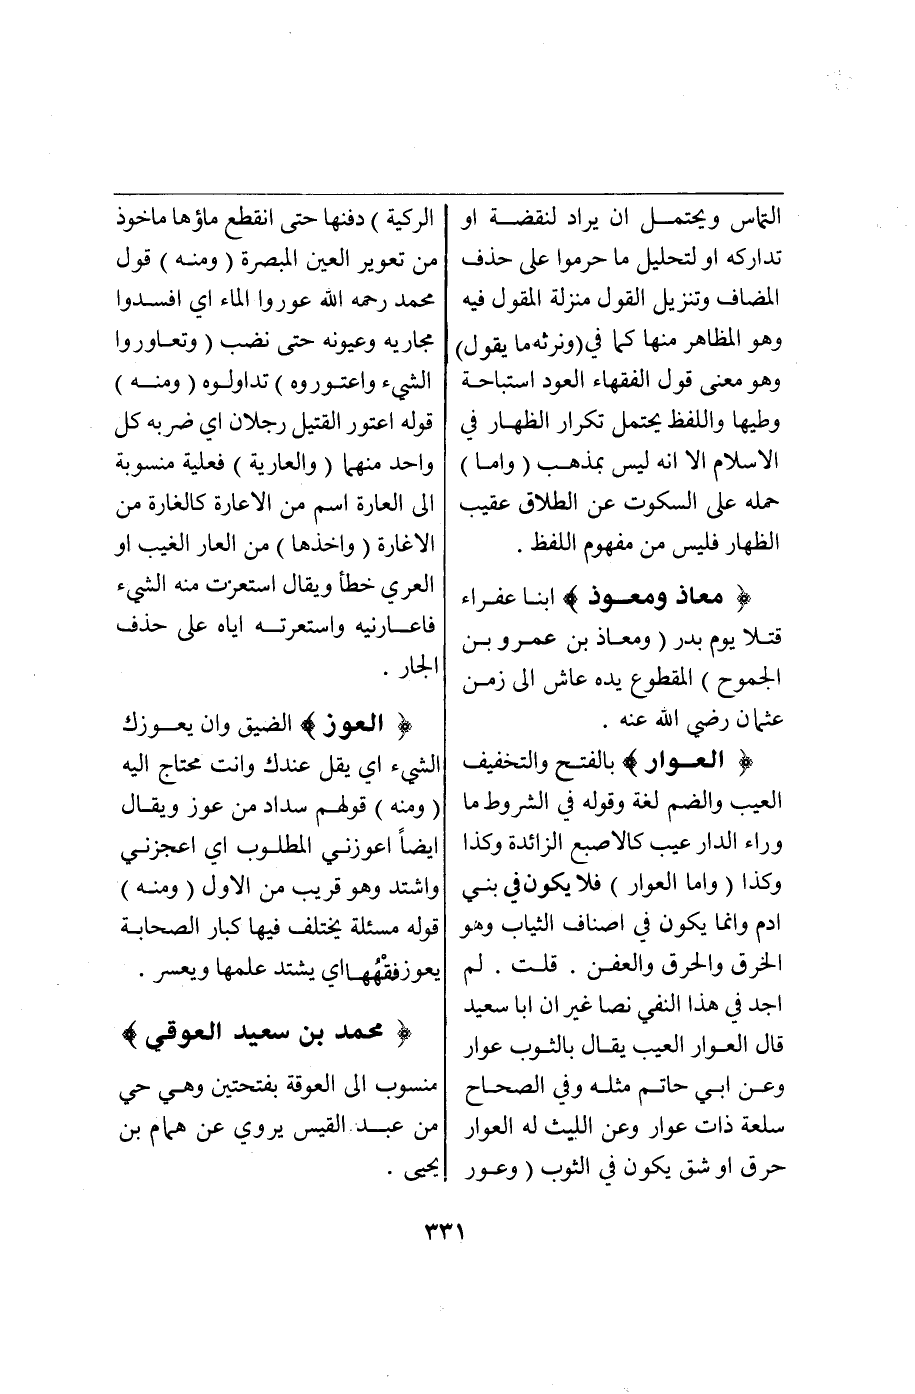 التماس ويحتمـــل ان يراد لنقضـــة او
تداركه او لتحليل ما حرموا على حذف
المضاف وتنزيل القول منزلة المقول فيه
وهو المظاهر منها كما في(ونرثه ما يقول)
وهو معنى قول الفقهاء العود استباحـة
وطيها واللفظ يحتمل تكرار الظهـار في
الاسلام الا انه ليس بمذهـب ( وامـا )
حمله على السكوت عن الطلاق عقيب
الظهار فليس من مفهوم اللفظ .
﴿ معاذ ومعــوذ ﴾ ابنـا عفـراء
قتـلا يوم بدر ( ومعـاذ بن عمـرو بـن
الجموح ) المقطوع يده عاش الى زمـن
عثمان رضي الله عنه .
﴿ العــوار ﴾ بالفتـح والتخفيف
العيب والضم لغة وقوله في الشروط ما
وراء الدار عيب كالاصبع الزائدة وكذا
وكذا ( واما العوار ) فلا يكون في بنـي
ادم وانما يكون في اصناف الثياب وهو
الخرق والحرق والعفـن . قلـت . لم
اجد في هذا النفي نصا غير ان ابا سعيد
قال العـوار العيب يقال بالثـوب عوار
وعـن ابـي حاتـم مثلـه وفي الصحـاح
سلعة ذات عوار وعن الليث له العوار
حرق او شق يكون في الثوب ( وعـور
الركية ) دفنها حتى انقطع ماؤها ماخوذ
من تعوير العين المبصرة ( ومنـه ) قول
محمد رحمه الله عوروا الماء اي افسـدوا
مجاريه وعيونه حتى نضب ( وتعـاوروا
الشيء واعتـوروه ) تداولـوه ( ومنــه )
قوله اعتور القتيل رجلان اي ضربه كل
واحد منهما ( والعارية ) فعلية منسوبة
الى العارة اسم من الاعارة كالغارة من
الاغارة ( واخذها ) من العار الغيب او
العري خطأ ويقال استعرت منه الشيء
فاعــارنيه واستعرتــه اياه على حذف
الجار .
﴿ العوز ﴾ الضيق وان يعــوزك
الشيء اي يقل عندك وانت محتاج اليه
( ومنه ) قولهـم سداد من عوز ويقـال
ايضاً اعوزنـي المطلـوب اي اعجزنـي
واشتد وهو قريب من الاول ( ومنـه )
قوله مسئلة يختلف فيها كبار الصحابـة
يعوز فقهُهـا اي يشتد علمها ويعسر .
﴿ محمد بن سعيد العوقي ﴾
منسوب الى العوقة بفتحتين وهـي حي
من عبــد القيس يروي عن همام بن
يحيى .
٣٣١